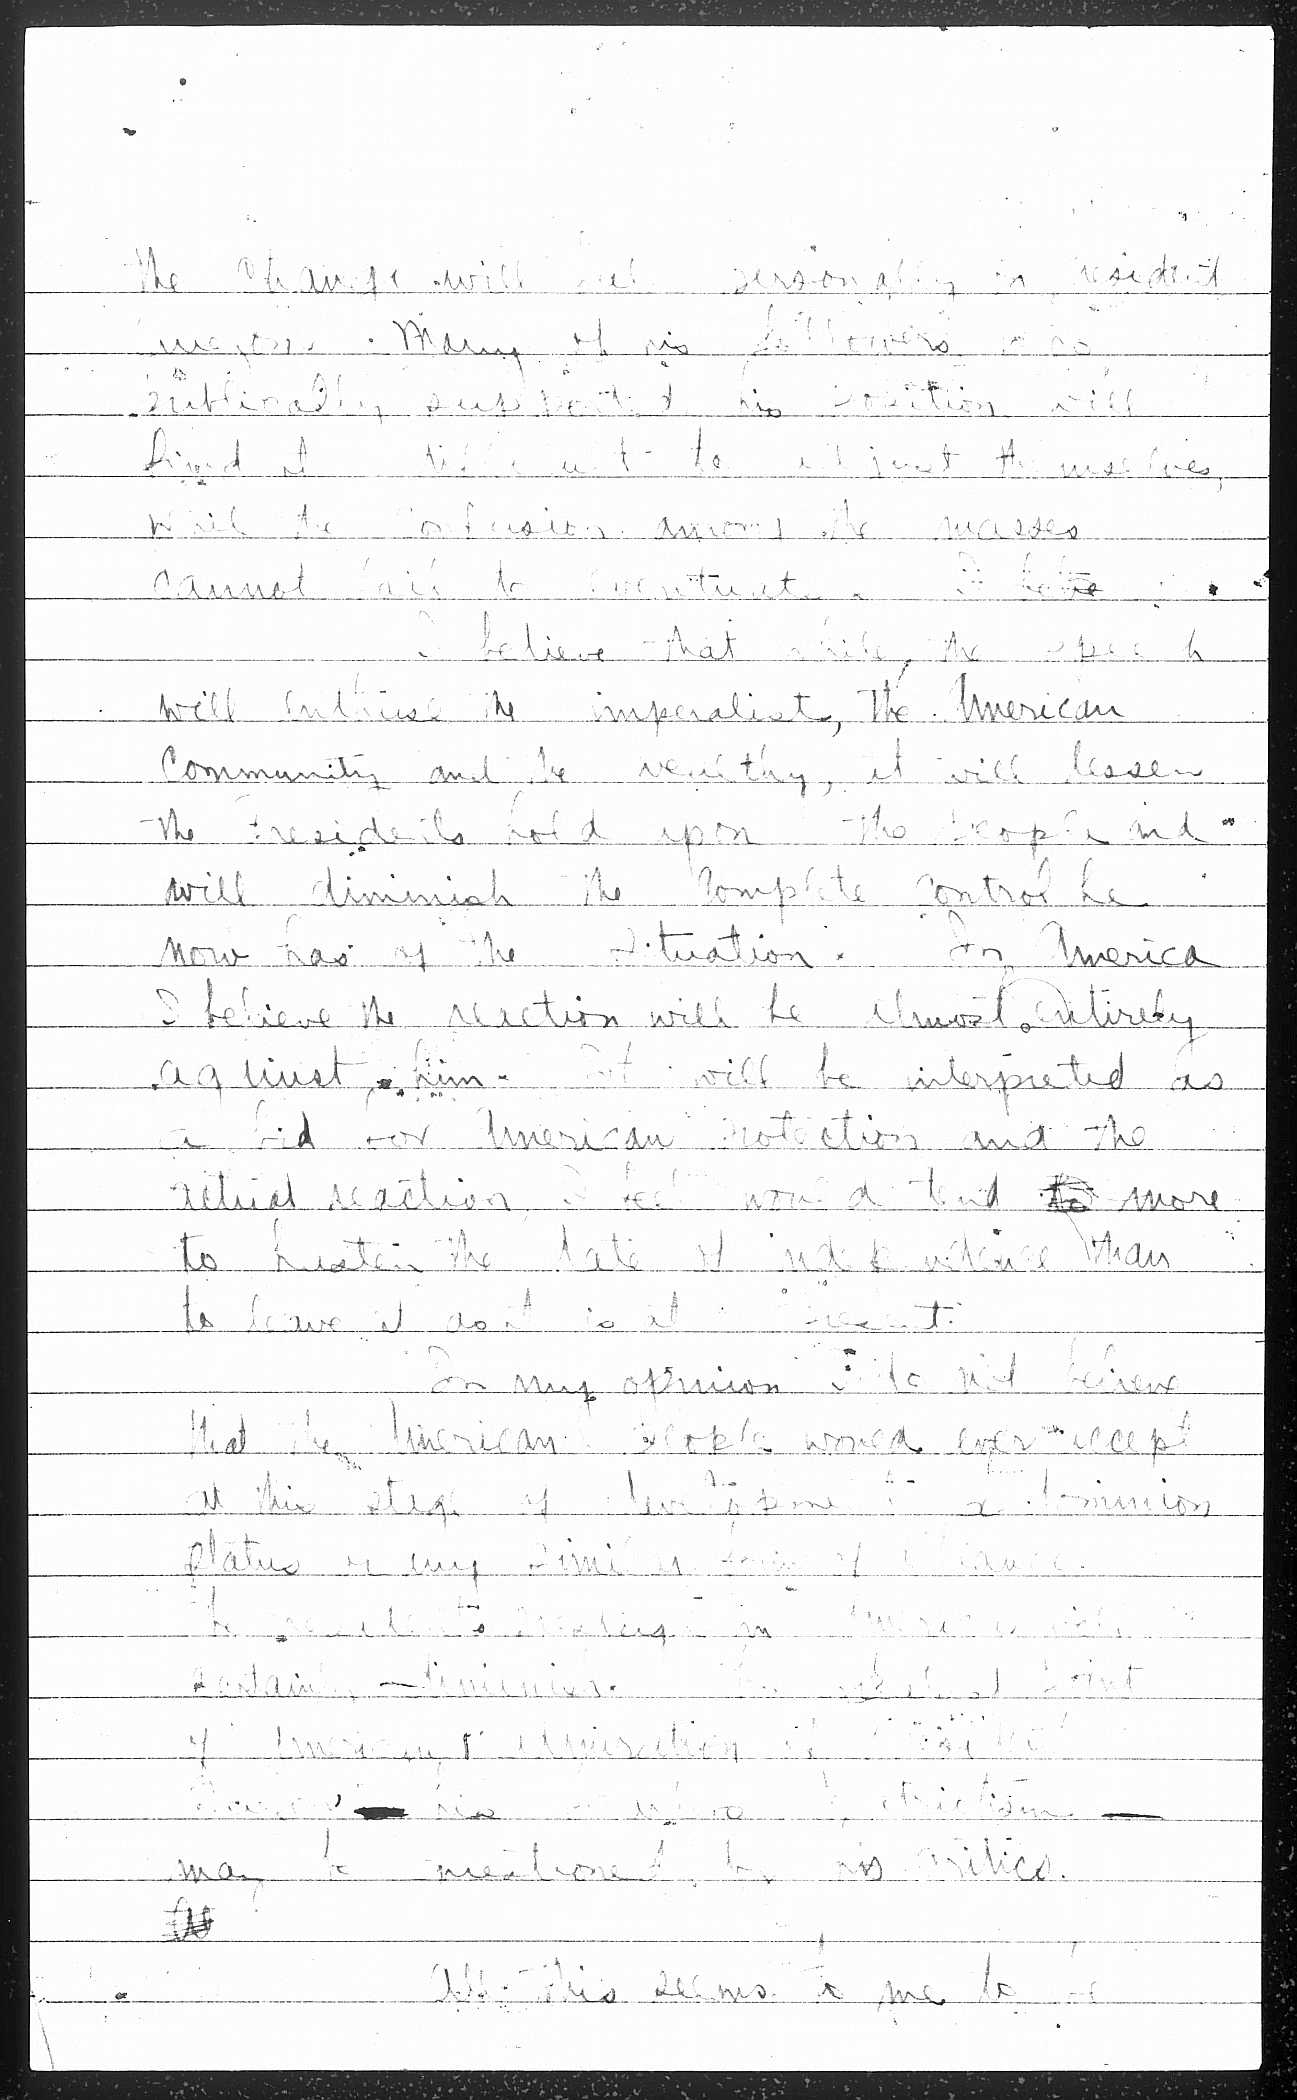 the change will personally President
Many of his followers who
publically supported his position will
find it difficult to adjust themselves,
while the confusion among the masses
cannot fail to eventuate. I
I believe that while, the speech
will enthuse the imperalists, the American
Community and the wealthy, it will lessen
the Presidents hold upon the people and
will diminish the complete control he
now has of the situation. In America
I believe the reaction will be almost entirely
against him. It will be interpreted as
a bid for American Protection and the
actual reaction I feel would tend more
to hasten the date of independence than
to leave it as it is at present.
In my opinion I do not believe
that the American people would ever accept
at this stage of development a dominion
status or any similar form of
The in America will
certainly diminish. The point
of American admiration
his patriotism —
may be mentioned by his critics.
All this seems to me to be